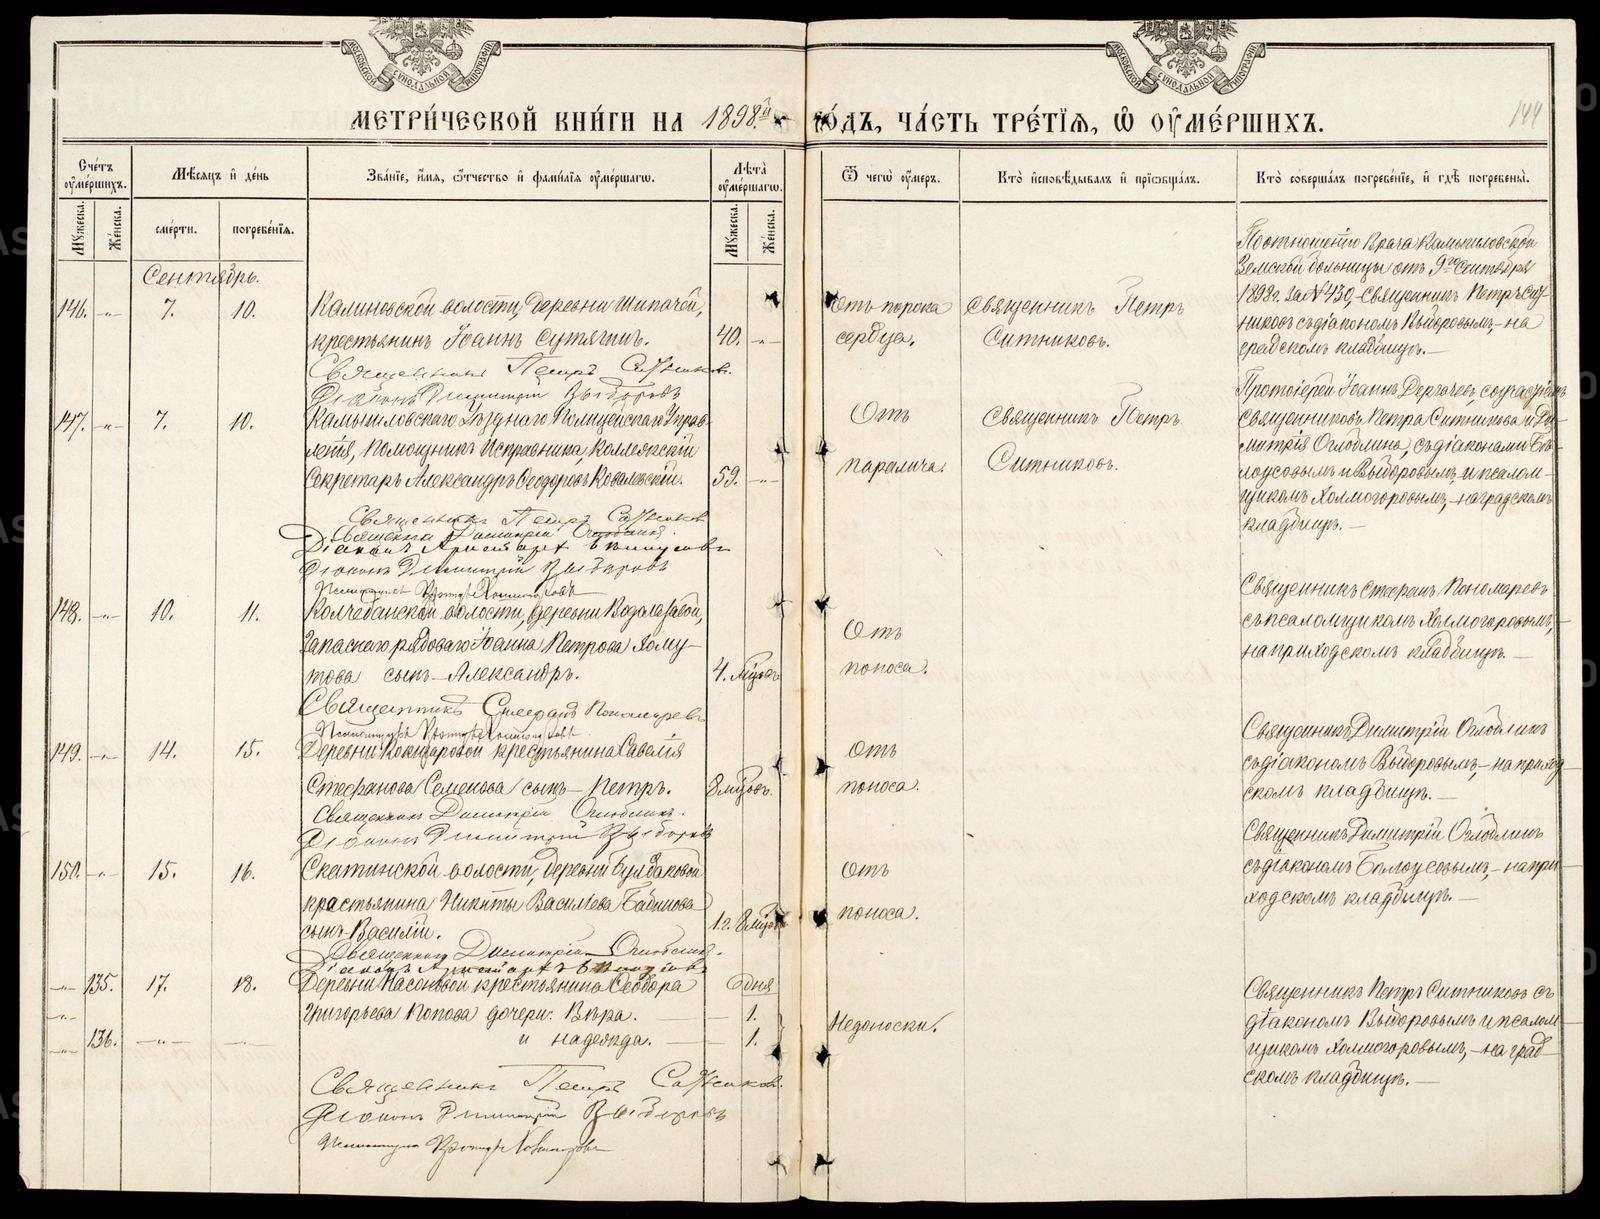 МОСКОВСКОЙ СѴНОДАЛЬНОЙ ТИПОГРАФІИ
МОСКОВСКОЙ СѴНОДАЛЬНОЙ ТИПОГРАФІИ
МЕТРИ́ЧЕСКОЙ КНИ́ГИ НА 1898.й ГО́ДЪ, ЧА́СТЬ ТРЕ́ТІЯ, Ѿ ОУМЕ́РШИХЪ.
144
Сче́тъ оуме́ршихъ.
Му́жеска.
Же́нска.
Мѣ́сяцъ и де́нь
сме́рти.
погребе́нія.
Зва́ніе, и́мя, о́тчество и фами́лія оуме́ршагѡ.
Лѣта̀ оуме́ршагѡ.
Му́жеска.
Же́нска.
Ѿ чегѡ̀ оу́меръ.
Кто̀ и҆сповѣ́дывалъ и҆ прїѡбща́лъ.
Кто̀ соверша́лъ погребе́ніе, и҆ гдѣ̀ погребены̀.
Сентябрь.
146. -"- 7. 10.
Калиновской волости, деревни Шипачей,
крестьянинъ Іоаннъ Сутягинъ. 40. -"-
Священникъ Петръ Ситниковъ.
Діаконъ Димитрій Выборовъ
Отъ порока
сердца.
Священникъ Петръ
Ситниковъ.
По отношенію Врача Камышловской
Земской больницы отъ 9го Сентября
1898 г. за № 430, Священникъ Петръ Сит-
никовъ съ діакономъ Выборовымъ, на
градскомъ кладбищѣ. —
147. -"- 7. 10.
Камышловскаго Уѣзднаго Полицейскаго Управ-
ленія, Помощникъ Исправника, Коллежскій
Секретарь Александръ Ѳеодоровъ Ковалевскій. 59. -"-
Священникъ Петръ Ситниковъ
Священникъ Димитрій Оглоблинъ.
Діаконъ Аристархъ Бѣлоусовъ
Діаконъ Димитрій Выборовъ
Отъ
паралича.
Священникъ Петръ
Ситниковъ.
Протоіерей Іоаннъ Дергачевъ, соучастіемъ
священниковъ Петра Ситникова и Ди-
митрія Оглоблина, съ діаконами Бѣ-
лоусовымъ и Выборовымъ, и псалом-
щикомъ Холмогоровымъ, на градскомъ
кладбищѣ. —
148. -"- 10. 11.
Колчеданской волости, деревни
запаснаго рядоваго Іоанна Петрова Хому-
това сынъ Александръ. 4. мѣсяц.
Священникъ Стефанъ Пономаревъ
Отъ
поноса.
Священникъ Стефанъ Пономаревъ
съ псаломщикомъ Холмогоровымъ,
на приходскомъ кладбищѣ. —
149. -"- 14. 15.
Деревни Кокшаровой крестьянина Савелія
Стефанова Семенова сынъ Петръ. 8 мѣсяц.
Священникъ Димитрій Оглоблинъ.
Діаконъ Димитрій Выборовъ
Отъ
поноса.
Священникъ Димитрій Оглоблинъ
съ діакономъ Выборовымъ, на приход-
скомъ кладбищѣ. —
150. -"- 15. 16.
Скатинской волости, деревни Булдаковой
крестьянина Никиты Васильева
сынъ Василій. 1 г. 8 мѣсяц.
Священникъ Димитрій Оглоблинъ.
Діаконъ Аристархъ Бѣлоусовъ
Отъ
поноса.
Священникъ Димитрій Оглоблинъ
съ діакономъ Бѣлоусовымъ, на при-
ходскомъ кладбищѣ. —
-"- 135. 17. 18.
Деревни Насоновой крестьянина Ѳеодора
Григорьева Попова дочери: Вѣра. — 1.
-"- 136. -"- -"-
и Надежда. — 1.
дня
Священникъ Петръ Ситниковъ.
Діаконъ Димитрій Выборовъ
Недоноски.
Священникъ Петръ Ситниковъ съ
діакономъ Выборовымъ и псалом-
щикомъ Холмогоровымъ, на град-
скомъ кладбищѣ. —